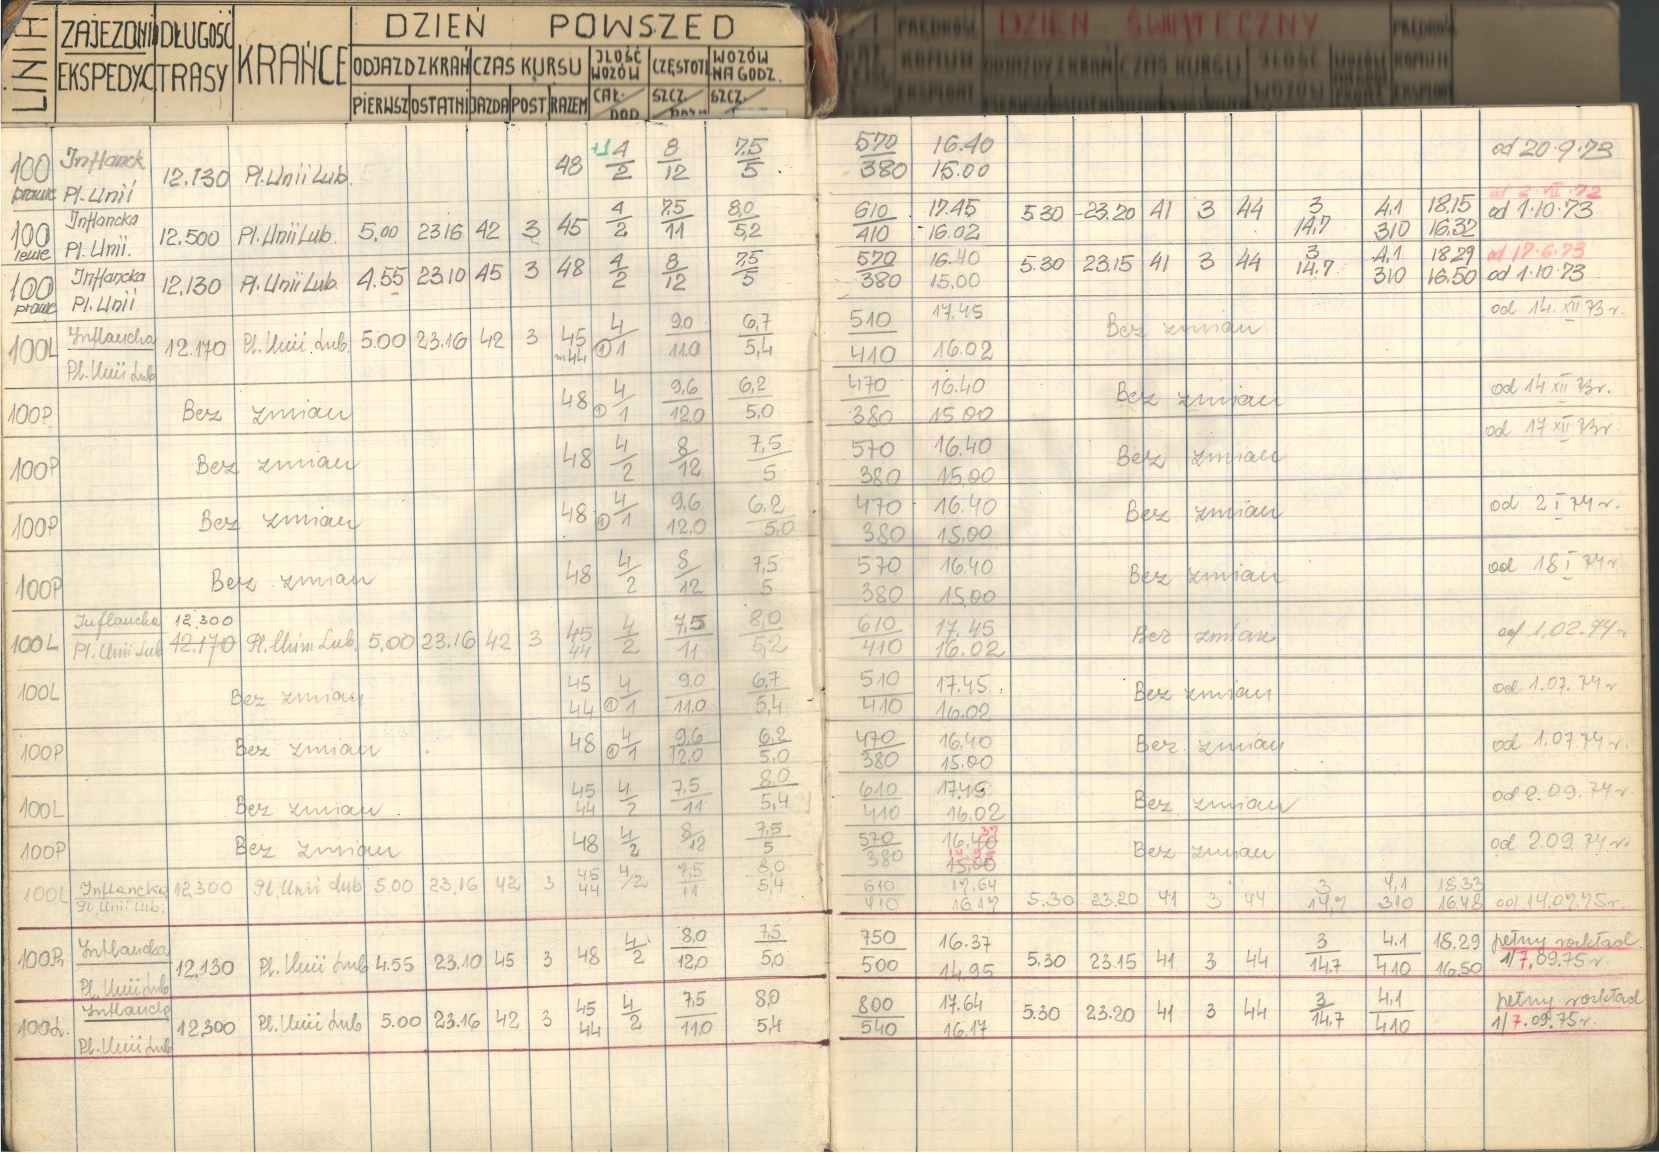 LINIA ZAJEZDNI EKSPEDYC DŁUGOŚĆ TRASY KRAŃCE
DZIEŃ POWSZED
ODJAZD Z KRAŃ CZAS KURSU ILOŚĆ WOZÓW CZĘSTOT WOZÓW NA GODZ.
PIERWSZ OSTATNI JAZDA POST RAZEM CAŁ. DOD SZCZ. SZCZ.
PRĘDKOŚ KOMUN EKSPLOAT DZIEŃ ŚWIĄTECZNY PRĘDKOŚ KOMUN
ODJAZDY Z KRAŃ CZAS KURSU ILOŚĆ WOZÓW
100 prawe Inflanck Pl. Unii 12.130 Pl. Unii Lub. 48 4/2 8/12 7,5/5 570/380 16.40 15.00 od 20.9.73
100 lewe Inflancka Pl. Unii. 12.500 Pl. Unii Lub. 5,00 23.16 42 3 45 4/2 7,5/11 8,0/5,2 610/410 17.45 16.02 5.30 23.20 41 3 44 3 14,7 4,1 310 18,15 16,32 od 1.10.73
100 prawe Inflancka Pl. Unii 12.130 Pl. Unii Lub. 4.55 23.10 45 3 48 4/2 8/12 7,5/5 570/380 16.40 15.00 5.30 23.15 41 3 44 3 14,7 4,1 310 18.29 16.50 od 17.6.73 od 1.10.73
100L Inflancka Pl. Unii Lub 12.170 Pl. Unii Lub. 5.00 23.16 42 3 45 m44 4/1 ① 9.0/11.0 6,7/5,4 510/410 17.45 16.02 Bez zmian od 14.XII 73 r.
100P Bez zmian 48 4/1 ① 9,6/12,0 6,2/5,0 470/380 16.40 15.00 Bez zmian od 14 XII 73r.
100P Bez zmian 48 4/2 8/12 7,5/5 570/380 16.40 15.00 Bez zmian od 17 XII 73r.
100P Bez zmian 48 4/1 ① 9,6/12,0 6,2/5,0 470/380 16.40 15.00 Bez zmian od 2 I 74 r.
100P Bez zmian 48 4/2 8/12 7,5/5 570/380 16.40 15.00 Bez zmian od 18 I 74 r.
100L Inflancka Pl. Unii Lub 12.300 12.170 Pl. Unii Lub. 5,00 23.16 42 3 45 44 4/2 7,5/11 8,0/5,2 610/410 17.45 16.02 Bez zmian od 1.02.74 r
100L Bez zmian 45 44 4/1 ① 9,0/11,0 6,7/5,4 510/410 17.45. 16.02 Bez zmian od 1.07.74 r
100P Bez zmian 48 4/1 ① 9,6/12,0 6,2/5.0 470/380 16.40 15.00 Bez zmian od 1.07.74 r.
100L Bez zmian 45 44 4/2 7,5/11 8,0/5,4 610/410 17.45 16.02 Bez zmian od 2.09.74 r.
100P Bez zmian 48 4/2 8/12 7,5/5 570/380 16.40 37 15.00 Bez zmian od 2.09.74 r.
100L Inflancka Pl. Unii Lub. 12,300 Pl. Unii Lub 5.00 23,16 42 3 45 44 4/2 7,5/11 8,0/5,4 610/410 17.64 16.17 5.30 23.20 41 3 44 3 14,7 4,1 310 18.33 16.48 od 14.07.75 r.
100Pr Inflancka Pl. Unii Lub 12.130 Pl. Unii Lub 4.55 23.10 45 3 48 4/2 8,0/12,0 7,5/5,0 750/500 16.37 14.95 5.30 23.15 41 3 44 3/14.7 4.1/410 18.29 16.50 pełny rozkład 1/7.09.75 r.
100L. Inflancka Pl. Unii Lub 12300 Pl. Unii Lub 5.00 23.16 42 3 45 44 4/2 7,5/11,0 8,0/5,4 800/540 17.64 16.17 5.30 23.20 41 3 44 3/14,7 4.1/410 pełny rozkład 1/7.09.75 r.